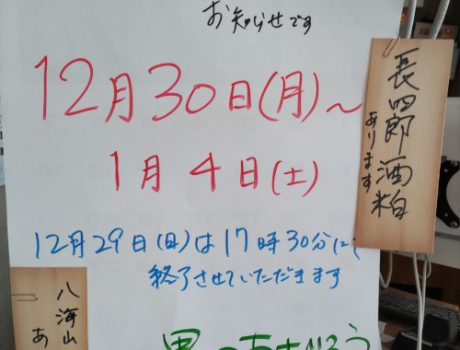 お知らせです
12月30日(月)〜
1月4日(土)
12月29日(日)は17時30分に
終了させていただきます
長四郎酒粕
あります
八海山
あ